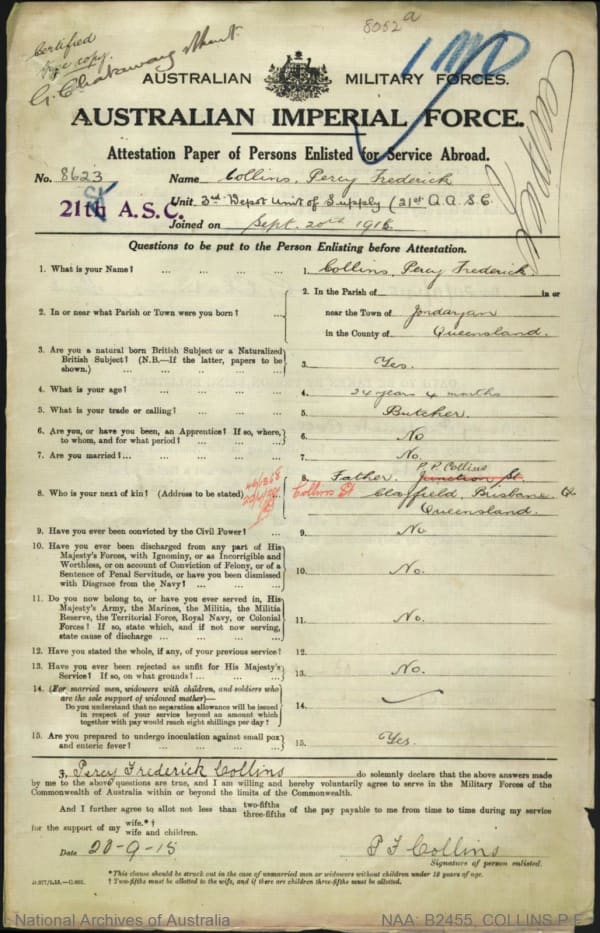 8052a
Certified
true copy.
AUSTRALIAN MILITARY FORCES.
AUSTRALIAN IMPERIAL FORCE.
Attestation Paper of Persons Enlisted for Service Abroad.
No. 8623 Name Collins, Percy Frederick
21st A.S.C. Unit 3rd Depot Unit of Supply (21st A.A.S.C.
Joined on Sept. 20th 1915
Questions to be put to the Person Enlisting before Attestation.
1. What is your Name? ... ... ... ... 1. Collins, Percy Frederick
2. In or near what Parish or Town were you born? ... 2. In the Parish of in or
near the Town of Jondaryan
in the County of Queensland.
3. Are you a natural born British Subject or a Naturalized
British Subject? (N.B.—If the latter, papers to be
shown.) ... ... ... ... 3. Yes.
4. What is your age? ... ... ... ... 4. 24 years 4 months
5. What is your trade or calling? ... ... ... 5. Butcher.
6. Are you, or have you been, an Apprentice? If so, where,
to whom, and for what period? ... ... ... 6. No
7. Are you married? ... ... ... ... 7. No.
8. Who is your next of kin? (Address to be stated) 8. Father. P.P. Collins
Junction St
Collins St Clayfield, Brisbane Q
Queensland.
9. Have you ever been convicted by the Civil Power? ... 9. No
10. Have you ever been discharged from any part of His
Majesty's Forces, with Ignominy, or as Incorrigible and
Worthless, or on account of Conviction of Felony, or of a
Sentence of Penal Servitude, or have you been dismissed
with Disgrace from the Navy? ... ... ... 10. No.
11. Do you now belong to, or have you ever served in, His
Majesty's Army, the Marines, the Militia, the Militia
Reserve, the Territorial Force, Royal Navy, or Colonial
Forces? If so, state which, and if not now serving,
state cause of discharge ... ... ... 11. No.
12. Have you stated the whole, if any, of your previous service? 12.
13. Have you ever been rejected as unfit for His Majesty's
Service? If so, on what grounds? ... ... ... 13. No.
14. (For married men, widowers with children, and soldiers who
are the sole support of widowed mother)—
Do you understand that no separation allowance will be issued
in respect of your service beyond an amount which
together with pay would reach eight shillings per day? ... 14.
15. Are you prepared to undergo inoculation against small pox
and enteric fever? ... ... ... ... 15. Yes.
I, Percy Frederick Collins do solemnly declare that the above answers made
by me to the above questions are true, and I am willing and hereby voluntarily agree to serve in the Military Forces of the
Commonwealth of Australia within or beyond the limits of the Commonwealth.
And I further agree to allot not less than two-fifths three-fifths of the pay payable to me from time to time during my service
for the support of my wife.*† wife and children.
Date 20-9-15 P F Collins
Signature of person enlisted.
*This clause should be struck out in the case of unmarried men or widowers without children under 18 years of age.
† Two-fifths must be allotted to the wife, and if there are children three-fifths must be allotted.
National Archives of Australia NAA: B2455, COLLINS P F